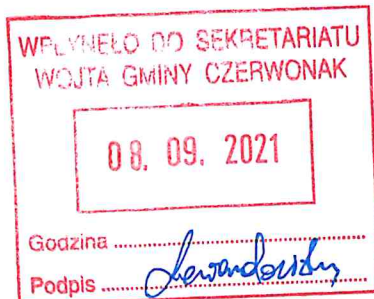 WPŁYNĘŁO DO SEKRETARIATU
WÓJTA GMINY CZERWONAK
08. 09. 2021
Godzina ..........................
Podpis ..........................